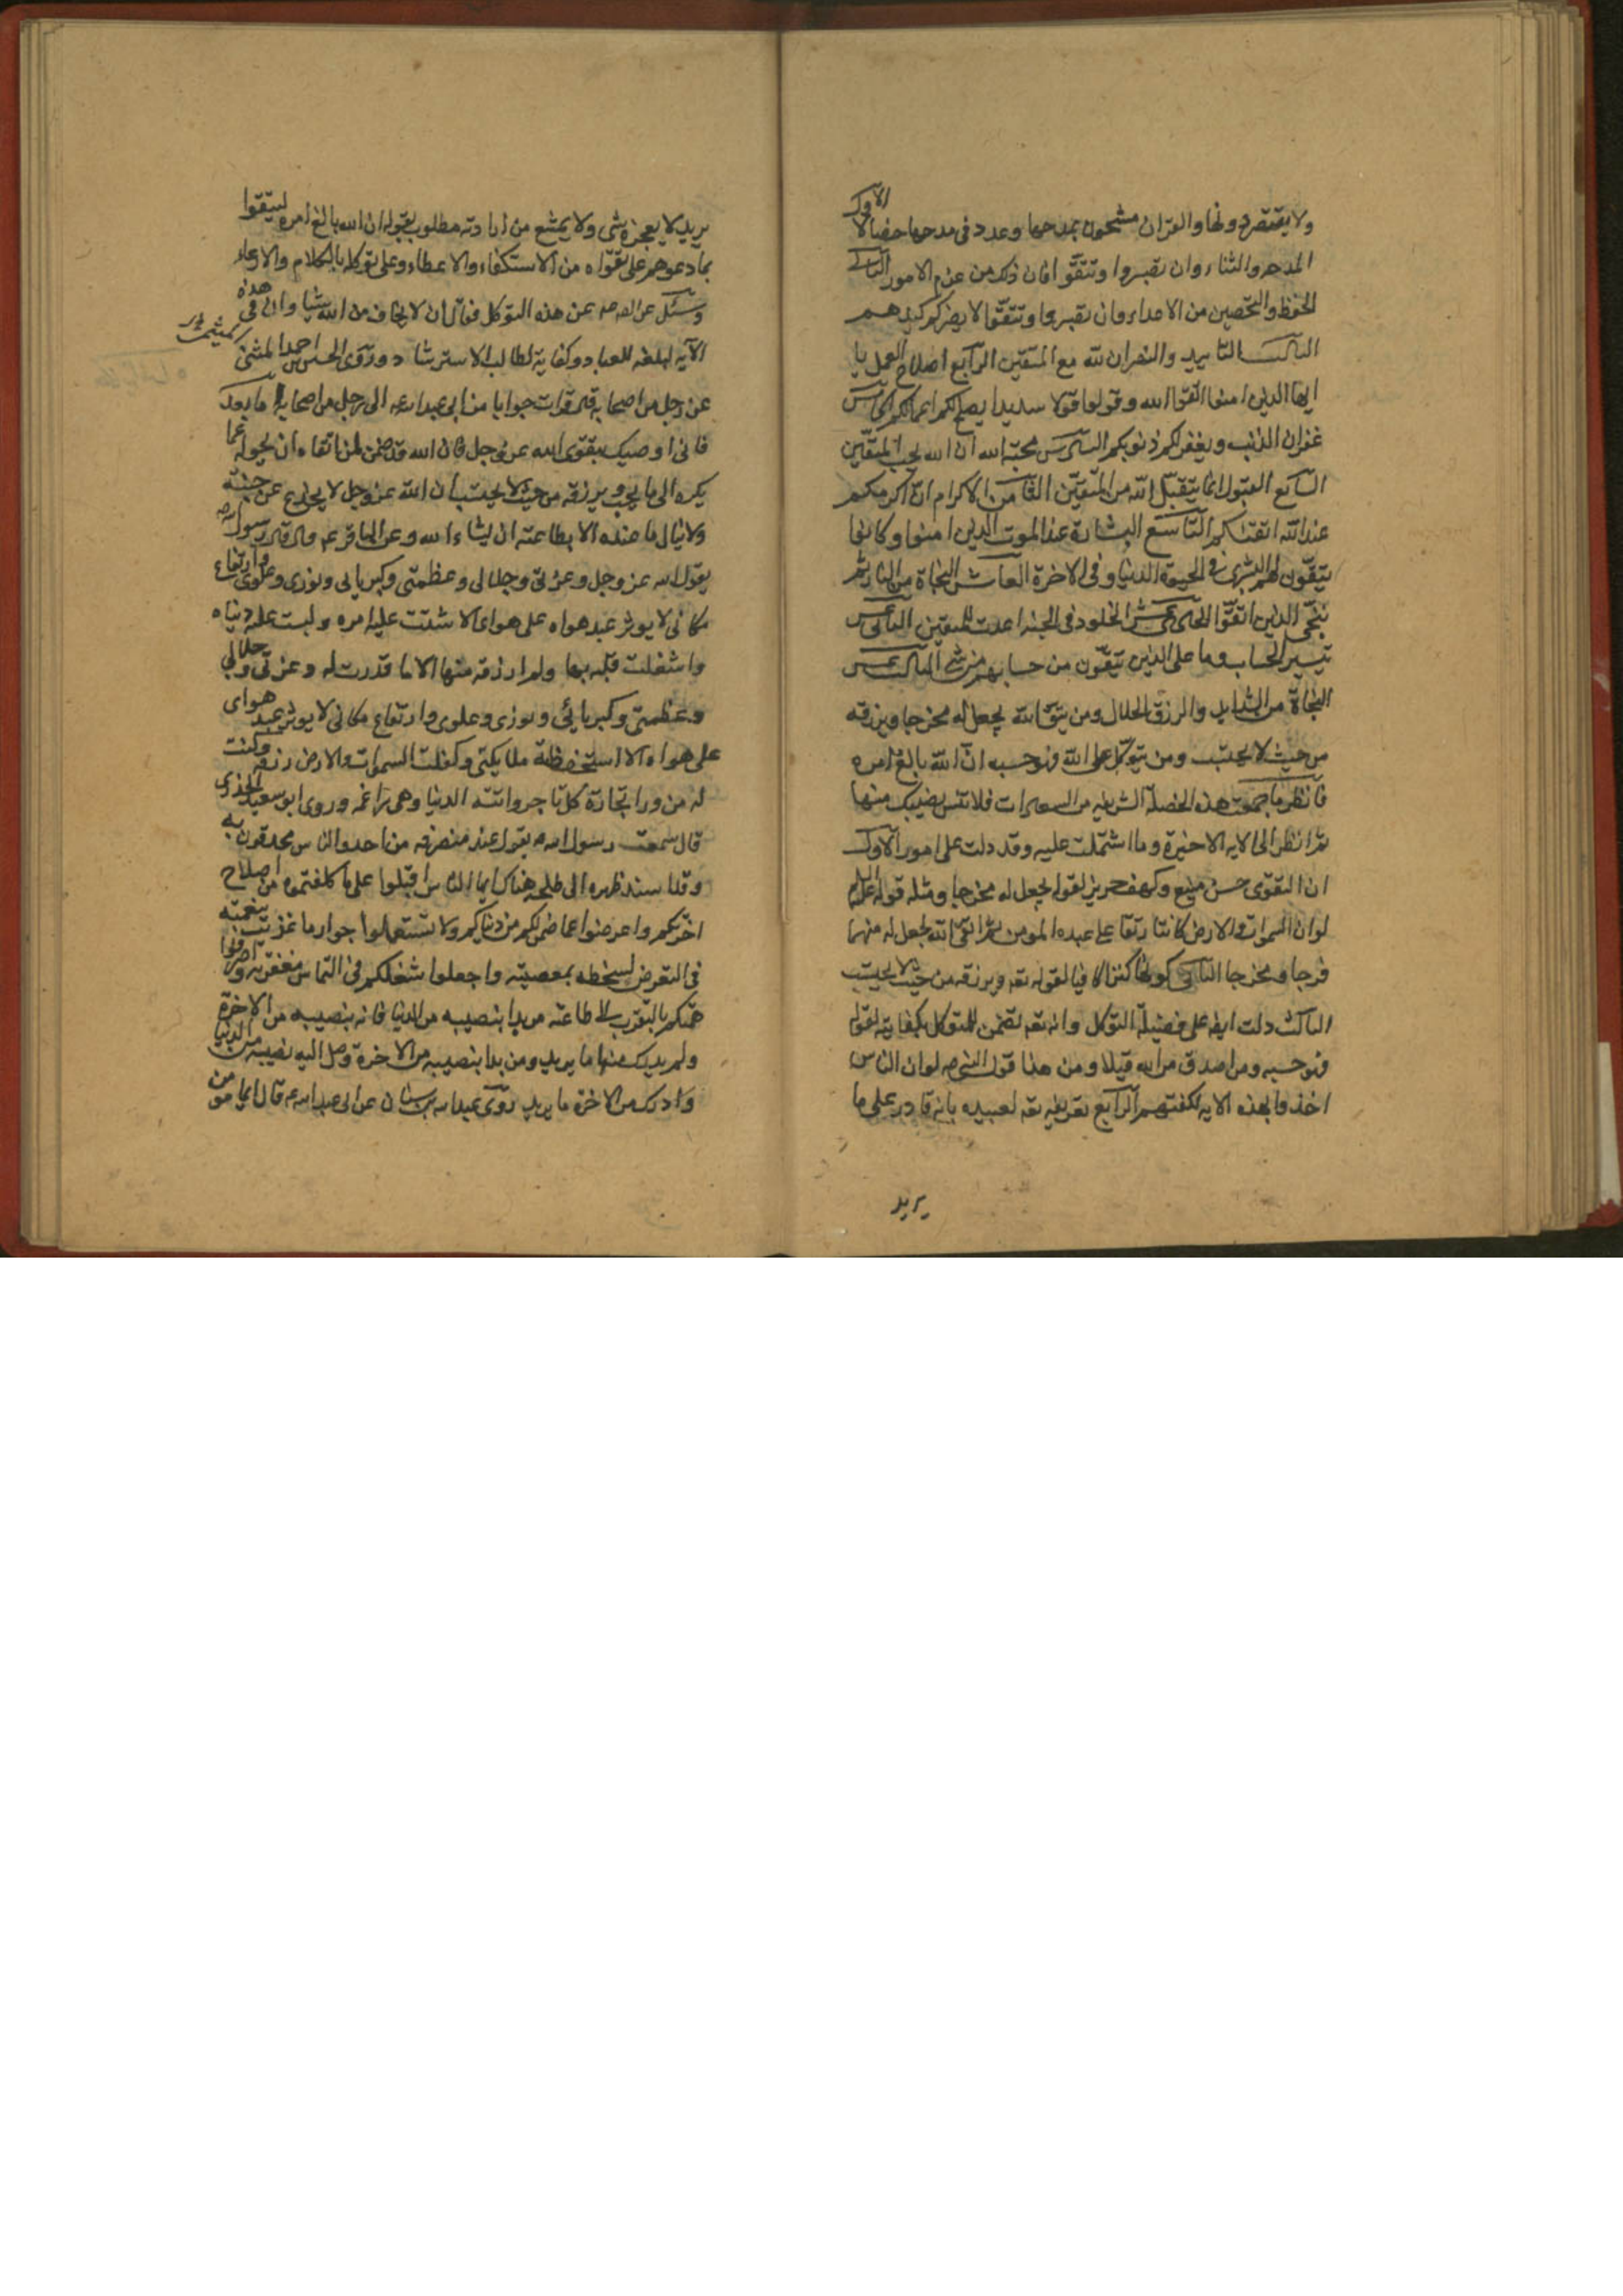 ولا يقتصر دونها والقران مشحون بمدحها وعدد في مدحها خصالا الاول
المدحه والثناء وان تصبروا وتتقوا فان ذلك من عزم الامور الثاني
الحفظ والتحصين من الاعداء وان تصبروا وتتقوا لا يضركم كيدهم
الثالث التاييد والنصر ان الله مع المتقين الرابع اصلاح العمل يا
ايها الذين امنوا اتقوا الله وقولوا قولا سديدا يصلح لكم اعمالكم الخامس
غفران الذنب ويغفر لكم ذنوبكم السادس محبة الله ان الله يحب المتقين
السابع القبول انما يتقبل الله من المتقين الثامن الاكرام ان اكرمكم
عند الله اتقيكم التاسع البشارة عند الموت الذين امنوا وكانوا
يتقون لهم البشرى في الحيوة الدنيا وفي الاخرة العاشر النجاة من النار ثم
ننجي الذين اتقوا الحادي عشر الخلود في الجنه اعدت للمتقين الثاني عشر
تيسير الحساب وما على الذين يتقون من حسابهم من شئ الثالث عشر
النجاة من الشدايد والرزق الحلال ومن يتق الله يجعل له مخرجا ويرزقه
من حيث لا يحتسب ومن يتوكل على الله فهو حسبه ان الله بالغ امره
فانظر ما جمعت هذه الخصلة الشريفه من السعادات فلا تنس نصيبك منها
ثم انظر الى الايه الاخيرة وما اشتملت عليه وقد دلت على امور الاول
ان التقوى حصن منيع وكهف حريز لقوله يجعل له مخرجا ومثله قوله
لو ان السموات والارض كانتا رتقا على عبده المومن ثم اتقى الله لجعل له منهما
فرجا ومخرجا الثاني كونها كنزا كافيا لقوله تعه ويرزقه من حيث لا يحتسب
الثالث دلت ايضه على فضيلة التوكل وانه تعه تضمن للمتوكل بكفايته لقوله
فهو حسبه ومن اصدق من الله قيلا ومن هذا قول النبي صه لو ان الناس
اخذوا بهذه الايه لكفتهم الرابع تعريفه تعه لعبيده بانه قادر على ما
يريد
يريد لا يعجزه شئ ولا يمتنع من ارادته مطلوب بقوله ان الله بالغ امره ليتقوا
بما دعوهم على تقواه من الاستكفاء والاعطاء وعلى توكله بالكلام والارعاء
وسئل عن الصه عن هذه التوكل فقال ان لا يخاف من الله شيئا وان في هذه
الايه لبلغه للعباد وكفاية لطالب الاسترشاد وروى الحسن احمد المثنى
عن رجل من اصحابه قال قرات جوابا من ابي عبد الله عه الى رجل من اصحابه اما بعد
فاني اوصيك بتقوى الله عز وجل فان الله قد ضمن لمن اتقاه ان يحوله عما
يكره الى ما يحب ويرزقه من حيث لا يحتسب ان الله عز وجل لا يخدع عن جنته
ولا ينال ما عنده الا بطاعته ان شاء الله وعن الباقر عه قال قال رسول الله صه
يقول الله عز وجل وعزتي وجلالي وعظمتي وكبريائي ونوري وعلوي وارتفاع
مكاني لا يوثر عبد هواه على هواي الا شتتت عليه امره ولبست عليه دنياه
واشغلت قلبه بها ولم ارزقه منها الا ما قدرت له وعزتي وجلالي
وعظمتي وكبريائي ونوري وعلوي وارتفاع مكاني لا يوثر عبد هواي
على هواه الا استحفظته ملائكتي وكفلت السموات والارض رزقه وكنت
له من وراء تجارة كل تاجر واتته الدنيا وهي راغمه وروى ابو سعيد الخدري
قال سمعت رسول الله صه يقول عند منصرفه من احد والناس محدقون به
وقد اسند ظهره الى طلحه هناك ايها الناس اقبلوا على ما كلفتموه من اصلاح
اخرتكم واعرضوا عما ضمن لكم من دنياكم ولا تستعملوا جوارحا غذيت بنعمته
في التعرض لسخطه بمعصيته واجعلوا شغلكم في التماس مغفرته واصرفوا
همتكم بالتقرب الى طاعته من بدا بنصيبه من الدنيا فاته نصيبه من الاخرة
ولم يدرك منها ما يريد ومن بدا بنصيبه من الاخرة وصل اليه نصيبه من الدنيا
وادرك من الاخرة ما يريد روى عبد الله بن سنان عن ابي عبد الله عه قال ايما مومن